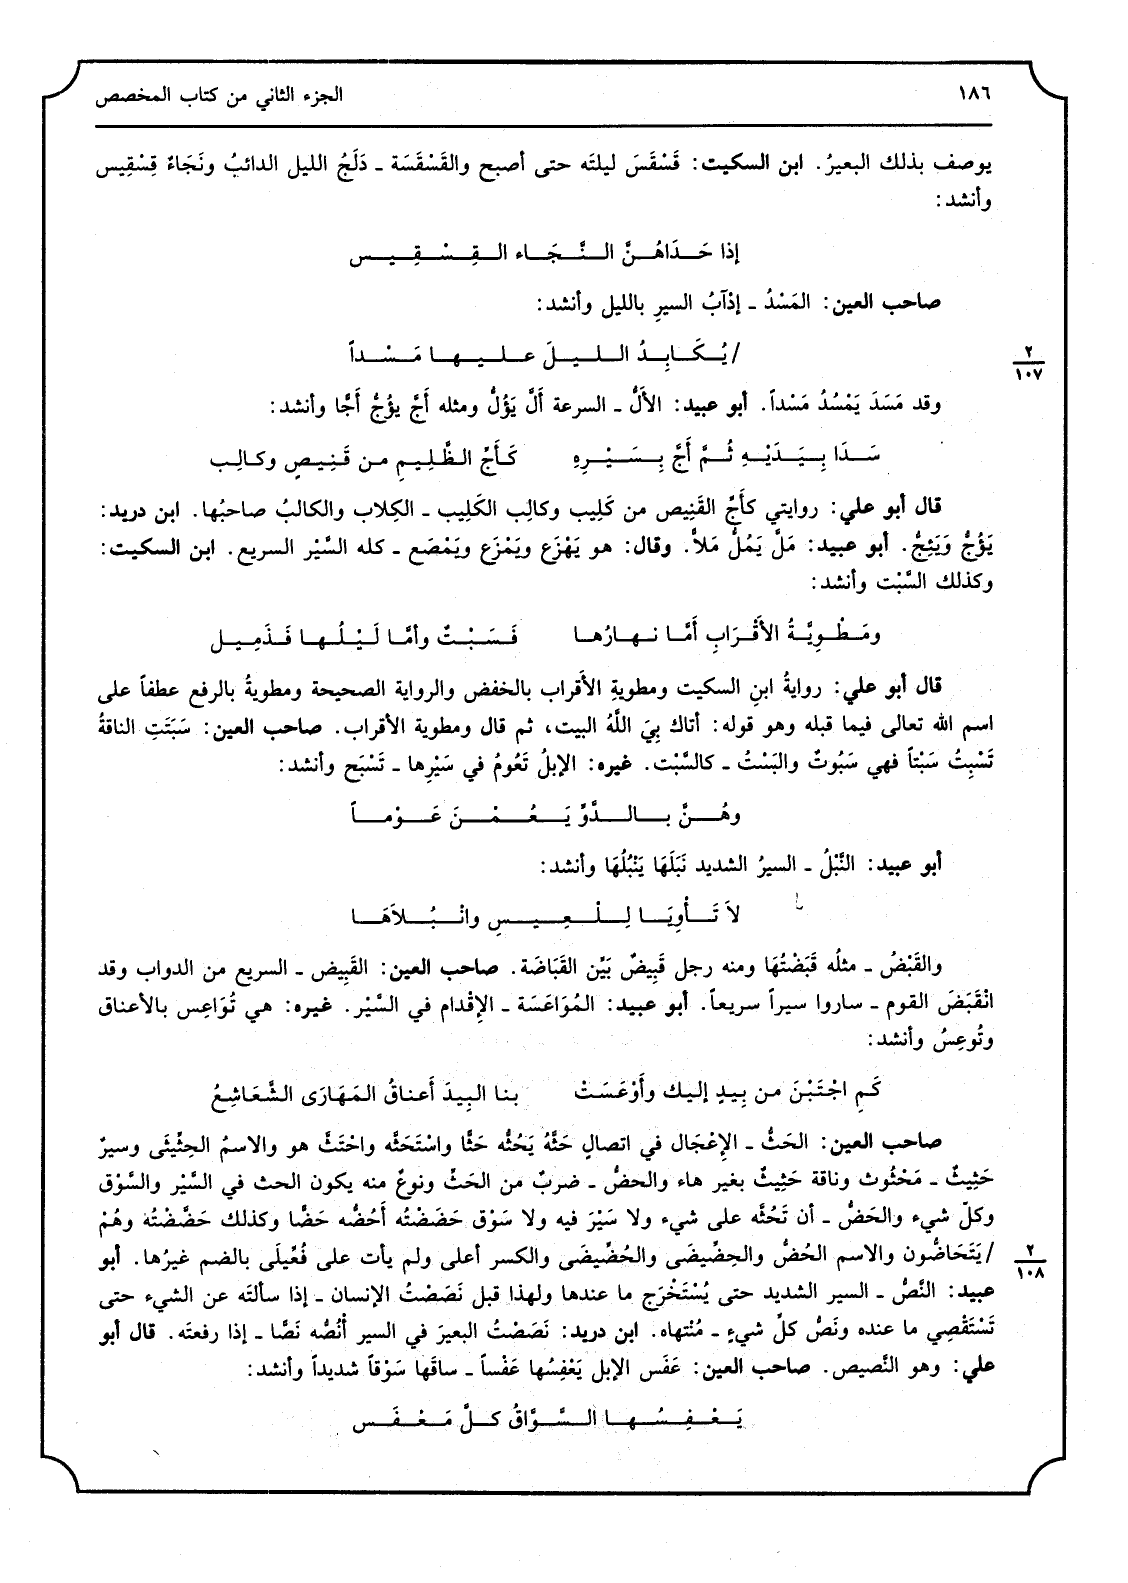 ١٨٦ الجزء الثاني من كتاب المخصص
يوصف بذلك البعيرُ. ابن السكيت: قَسْقَسَ ليلتَه حتى أصبح والقَسْقَسَة ـ دَلَجُ الليل الدائبُ ونَجَاءٌ قِسْقِيس
وأنشد:
إذا حَدَاهُنَّ النَّجَاء القِسْقِيس
صاحب العين: المَسْدُ ـ إدْآبُ السيرِ بالليل وأنشد:
/ يُكَابِدُ الليلَ عليها مَسْداً
٢
١٠٧
وقد مَسَدَ يَمْسُدُ مَسْداً. أبو عبيد: الأَلُّ ـ السرعة أَلَّ يَؤُلُّ ومثله أَجَّ يؤُجُّ أَجًّا وأنشد:
سَدَا بِيَدَيْهِ ثُمَّ أَجَّ بِسَيْرِهِ كَأَجِّ الظَّلِيمِ من قَنِيصٍ وكالِب
قال أبو علي: روايتي كأَجِّ القَنِيص من كَلِيب وكالِب الكَلِيب ـ الكِلاب والكالبُ صاحبُها. ابن دريد:
يَؤُجُّ وَيَئِجُّ. أبو عبيد: مَلَّ يَمُلُّ مَلاًّ. وقال: هو يَهْزَع ويَمْزَع ويَمْصَع ـ كله السَّيْر السريع. ابن السكيت:
وكذلك السَّبْت وأنشد:
ومَطْوِيَّةُ الأَقْرَابِ أَمَّا نهارُها فَسَبْتٌ وأمَّا لَيْلُها فَذَمِيل
قال أبو علي: روايةُ ابنِ السكيت ومطويةِ الأَقراب بالخفض والرواية الصحيحة ومطويةُ بالرفع عطفاً على
اسم الله تعالى فيما قبله وهو قوله: أتاك بِيَ اللَّهُ البيت، ثم قال ومطوية الأقراب. صاحب العين: سَبَتَتِ الناقةُ
تَسْبِتُ سَبْتاً فهي سَبُوتٌ والبَسْتُ ـ كالسَّبْت. غيره: الإبلُ تَعُومُ في سَيْرِها ـ تَسْبَح وأنشد:
وهُنَّ بالدَّوِّ يَعُمْنَ عَوْماً
أبو عبيد: النَّبْلُ ـ السيرُ الشديد نَبَلَهَا يَنْبُلُهَا وأنشد:
لاَ تَأْوِيَا لِلْعِيسِ وانْبُلاَهَا
والقَبْضُ ـ مثلُه قَبَضْتُهَا ومنه رجل قَبِيضٌ بَيِّن القَبَاضَة. صاحب العين: القَبِيض ـ السريع من الدواب وقد
انْقَبَضَ القوم ـ ساروا سيراً سريعاً. أبو عبيد: المُوَاعَسَة ـ الإقْدام في السَّيْر. غيره: هي تُوَاعِس بالأعناق
وتُوعِسُ وأنشد:
كَمِ اجْتَبْنَ من بِيدٍ إليك وأَوْعَسَتْ بنا البِيدَ أَعناقُ المَهَارَى الشَّعَاشِعُ
صاحب العين: الحَثُّ ـ الإعْجَال في اتصالٍ حَثَّهُ يَحُثُّه حَثًّا واسْتَحَثَّه واحْتَثَّ هو والاسمُ الحِثِّيثَى وسيرٌ
حَثِيثٌ ـ مَحْثُوث وناقة حَثِيثٌ بغير هاء والحضُّ ـ ضربٌ من الحَثِّ ونوعٌ منه يكون الحث في السَّيْر والسَّوْق
وكلِّ شيء والحَضُّ ـ أن تَحُثَّه على شيء ولا سَيْرَ فيه ولا سَوْق حَضَضْتُه أَحُضُّه حَضًّا وكذلك حَضَّضْتُه وهُمْ
/ يَتَحَاضُّون والاسم الحُضُّ والحِضِّيضَى والحُضِّيضَى والكسر أعلى ولم يأت على فُعِّيلَى بالضم غيرُها. أبو
٢
١٠٨
عبيد: النَّصُّ ـ السير الشديد حتى يُسْتَخْرَج ما عندها ولهذا قبل نَصَصْتُ الإنسان ـ إذا سألتَه عن الشيء حتى
تَسْتَقْصِي ما عنده ونَصُّ كلِّ شيءٍ ـ مُنْتهاه. ابن دريد: نَصَصْتُ البعيرَ في السير أَنُصُّه نَصًّا ـ إذا رفعتَه. قال أبو
علي: وهو النَّصيص. صاحب العين: عَفَس الإبل يَعْفِسُها عَفْساً ـ ساقَها سَوْقاً شديداً وأنشد:
يَعْفِسُها السَّوَّاقُ كلَّ مَعْفَس